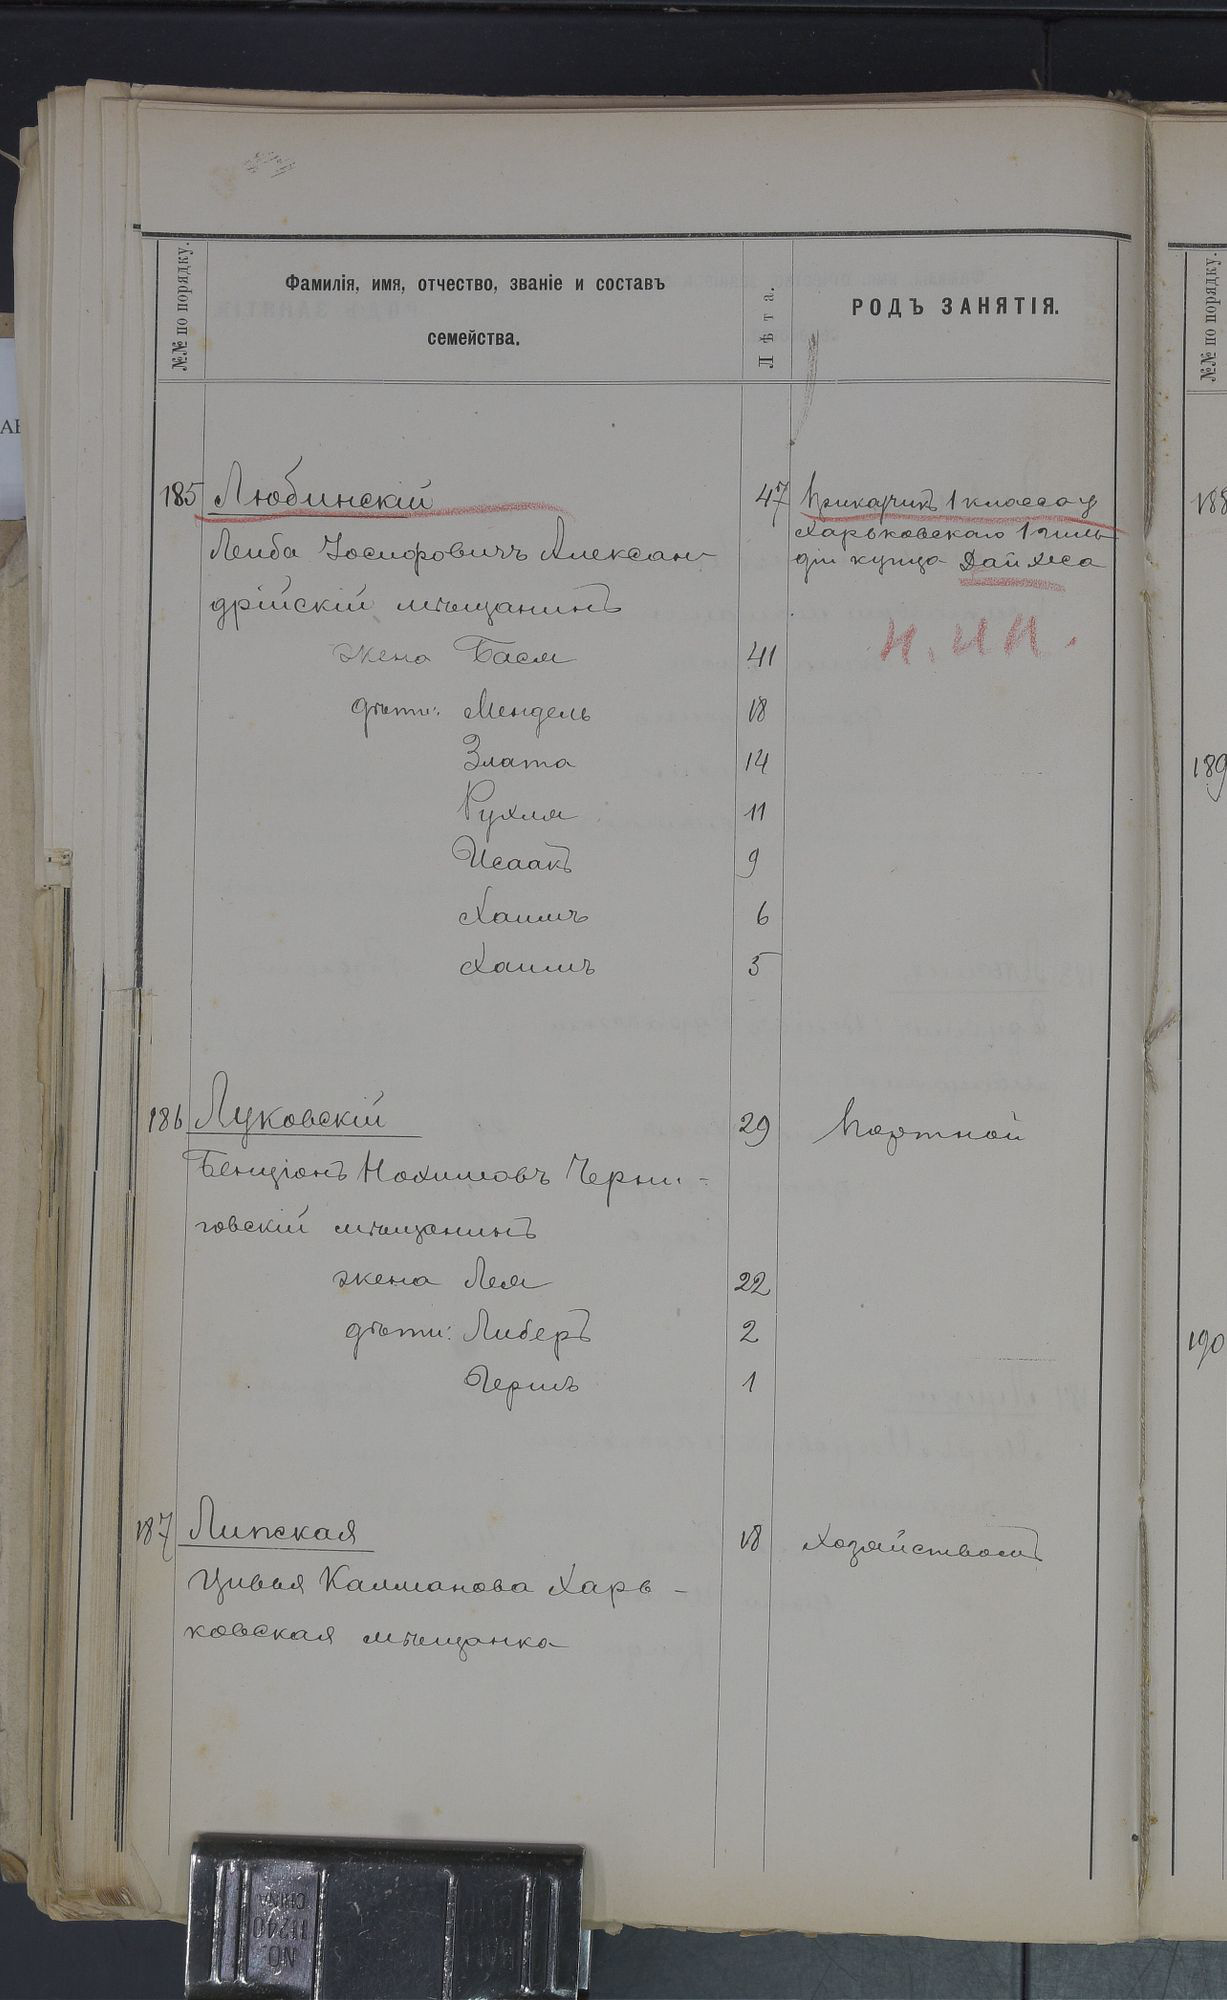 №№ по порядку.
Фамилія, имя, отчество, званіе и составъ
семейства.
Лѣта.
РОДЪ ЗАНЯТІЯ.
№№ по порядку.
185 Любинскій 47 Прикащикъ 1 класса у
Харьковскаго 1 гиль
діи купца Дайхеса
Лейба Іосифовичъ Алексан-
дрійскій мѣщанинъ
И. ИИ.
жена Бася 41
дѣти: Мендель 18
Злата 14
Рухля 11
Исаакъ 9
Хаимъ 6
Хаимъ 5
186 Луковскій 29 Портной
Бенціонъ Нохимовъ Черни-
говскій мѣщанинъ
жена Лея 22
дѣти: Либеръ 2
Гершъ 1
187 Липская 18 Хозяйствомъ
Цивья Калманова Харь-
ковская мѣщанка
188
189
190
NO.
11240
CHINA